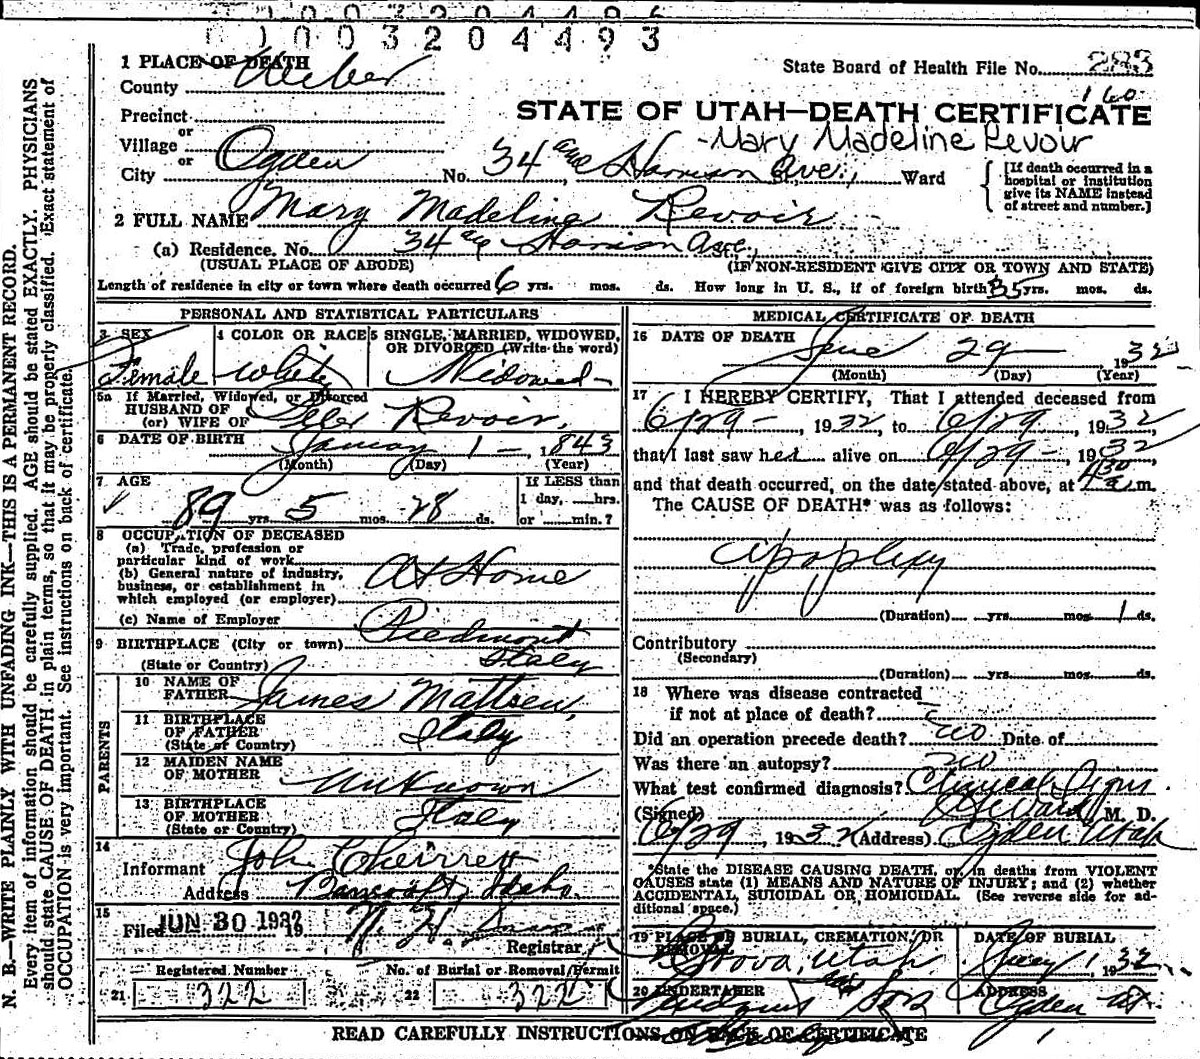 1003204493
1 PLACE OF DEATH
County Weber
State Board of Health File No. 283
160
Precinct
STATE OF UTAH—DEATH CERTIFICATE
or
Village
Mary Madeline Revoir
or
City Ogden No. 34 and Harrison Ave., Ward
[If death occurred in a hospital or institution give its NAME instead of street and number.]
2 FULL NAME Mary Madeline Revoir
(a) Residence. No. 34 Harrison Ave.,
(USUAL PLACE OF ABODE) (IF NON-RESIDENT GIVE CITY OR TOWN AND STATE)
Length of residence in city or town where death occurred 6 yrs. mos. ds. How long in U. S., if of foreign birth 35 yrs. mos. ds.
PERSONAL AND STATISTICAL PARTICULARS
3 SEX 4 COLOR OR RACE 5 SINGLE, MARRIED, WIDOWED, OR DIVORCED (Write the word)
Female White Widowed
5a If Married, Widowed, or Divorced
HUSBAND OF
(or) WIFE OF Peter Revoir.
6 DATE OF BIRTH January 1 — 1843
(Month) (Day) (Year)
7 AGE If LESS than
1 day, hrs.
89 yrs. 5 mos. 28 ds. or min.?
8 OCCUPATION OF DECEASED
(a) Trade, profession or
particular kind of work
(b) General nature of industry,
business, or establishment in
which employed (or employer)
At Home
(c) Name of Employer
9 BIRTHPLACE (City or town) Piedmont
(State or Country) Italy
PARENTS
10 NAME OF
FATHER James Mattsen,
11 BIRTHPLACE
OF FATHER Italy
(State or Country)
12 MAIDEN NAME
OF MOTHER Unknown
13 BIRTHPLACE
OF MOTHER Italy
(State or Country)
14
Informant John Cherrett
Address Bancroft, Idaho.
15
Filed JUN 30 1932 19
Registrar
Registered Number No. of Burial or Removal Permit
21 322 22 322
MEDICAL CERTIFICATE OF DEATH
16 DATE OF DEATH
June 29 — 1932
(Month) (Day) (Year)
17 I HEREBY CERTIFY, That I attended deceased from
6/29 —, 1932, to 6/29 —, 1932,
that I last saw her alive on 6/29 —, 1932,
and that death occurred, on the date stated above, at 4:30 a. m.
The CAUSE OF DEATH* was as follows:
Apoplexy
(Duration) yrs. mos. 1 ds.
Contributory
(Secondary)
(Duration) yrs. mos. ds.
18 Where was disease contracted
if not at place of death?
Did an operation precede death? no Date of
Was there an autopsy? no
What test confirmed diagnosis? Clinical Signs.
(Signed) M. D.
6/29, 1932 (Address) Ogden Utah
*State the DISEASE CAUSING DEATH, or, in deaths from VIOLENT
CAUSES state (1) MEANS AND NATURE OF INJURY; and (2) whether
ACCIDENTAL, SUICIDAL OR HOMICIDAL. (See reverse side for additional space.)
19 PLACE OF BURIAL, CREMATION, OR REMOVAL DATE OF BURIAL
Utah July 1, 1932
20 UNDERTAKER ADDRESS
and Sons Ogden Ut.
READ CAREFULLY INSTRUCTIONS ON BACK OF CERTIFICATE
N. B.—WRITE PLAINLY WITH UNFADING INK—THIS IS A PERMANENT RECORD.
Every item of information should be carefully supplied. AGE should be stated EXACTLY. PHYSICIANS
should state CAUSE OF DEATH in plain terms, so that it may be properly classified. Exact statement of
OCCUPATION is very important. See instructions on back of certificate.